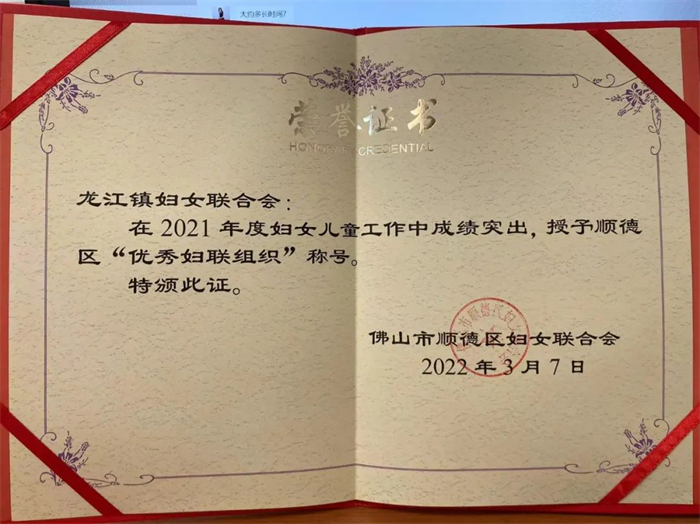 大约多长时间?
荣誉证书
HONORARY CREDENTIAL
龙江镇妇女联合会：
在 2021 年度妇女儿童工作中成绩突出，授予顺德
区“优秀妇联组织”称号。
特颁此证。
佛山市顺德区妇女联合会
2022 年 3 月 7 日